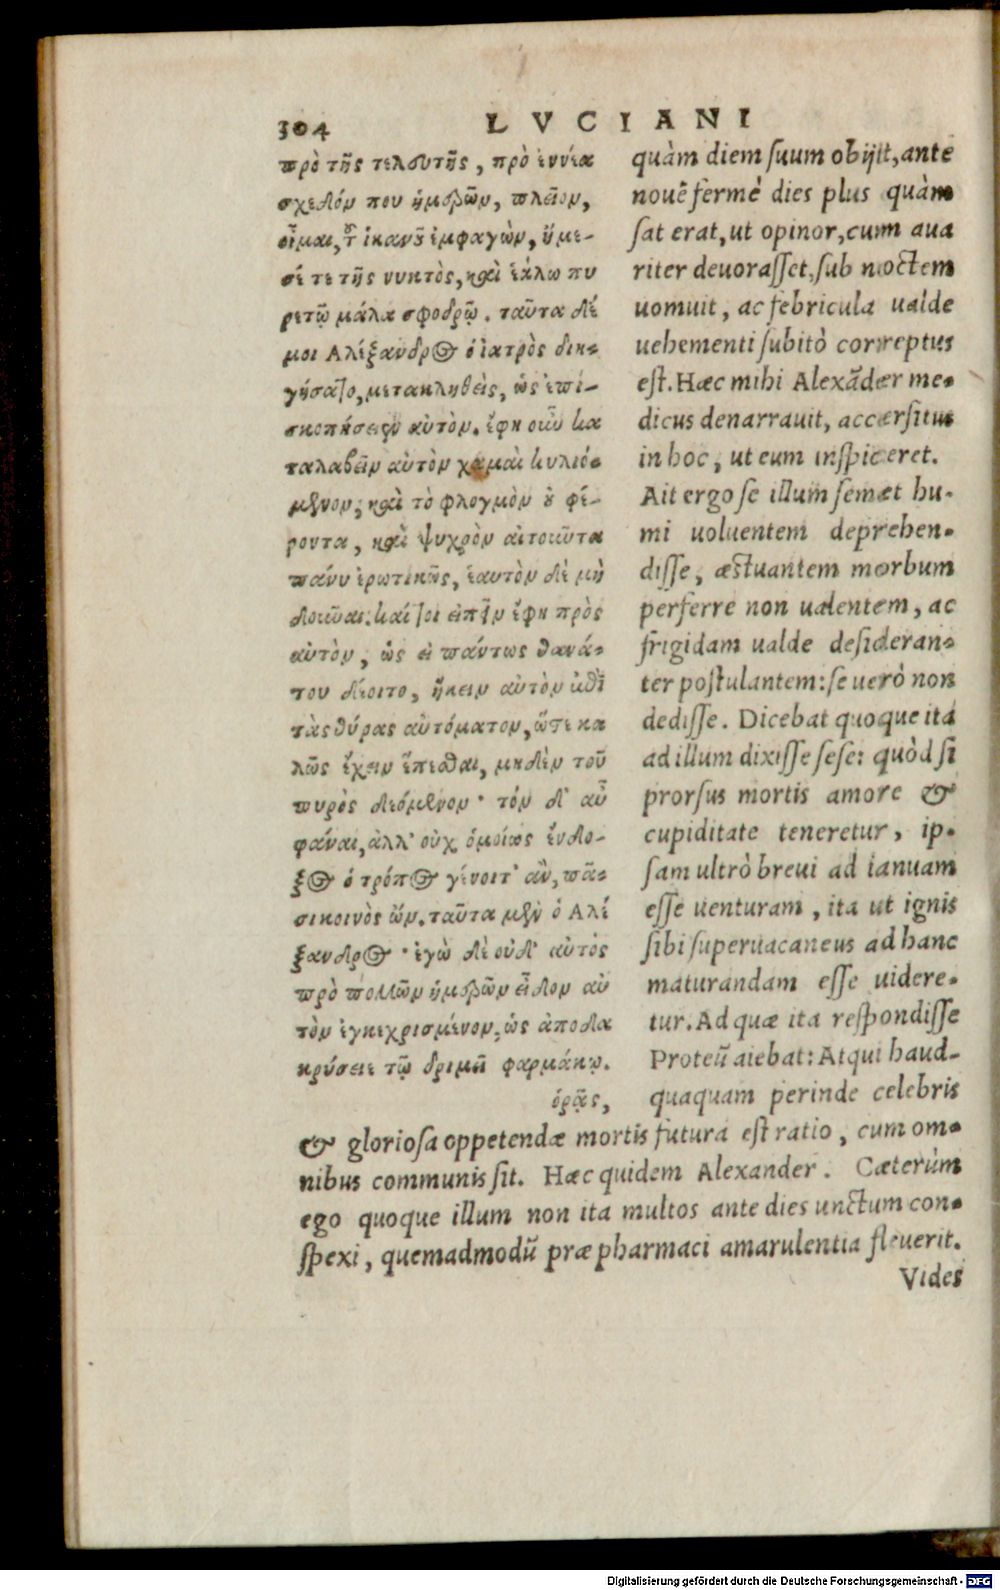 304 LVCIANI
πρὸ τῆς τελευτῆς, πρὸ ἐννέα
σχεδόν που ἡμερῶν, πλεῖον,
οἶμαι, τ̃ ἱκανοῦ ἐμφαγὼν, ἤμε-
σέ τε τῆς νυκτὸς, καὶ ἑάλω πυ
ρετῷ μάλα σφοδρῷ. ταῦτα δέ
μοι Αλέξανδρος ὁ ἰατρὸς διη-
γήσατο, μετακληθεὶς, ὡς ἐπι-
σκοπήσειεν αὐτόν. ἔφη οὖν κα
ταλαβεῖν αὐτὸν χαμαὶ κυλιό-
μενον, καὶ τὸ φλογμὸν οὐ φέ-
ροντα, καὶ ψυχρὸν αἰτοῦντα
πάνυ ἐρωτικῶς, ἑαυτὸν δὲ μὴ
δοῦναι. καίτοι εἰπεῖν ἔφη πρὸς
αὐτὸν, ὡς εἰ πάντως θανά-
του δέοιτο, ἥκειν αὐτὸν ἐπὶ
τὰς θύρας αὐτόματον, ὥστε κα
λῶς ἔχειν ἕπεσθαι, μηδὲν τοῦ
πυρὸς δεόμενον· τόν δ' αὖ
φάναι, ἀλλ' οὐχ ὁμοίως ἔνδο-
ξος ὁ τρόπος γένοιτ' ἂν, πᾶ-
σι κοινὸς ὤν. ταῦτα μὲν ὁ Αλέ
ξανδρος· ἐγὼ δὲ οὐδ' αὐτὸς
πρὸ πολλῶν ἡμερῶν εἶδον αὐ
τὸν ἐγκεχρισμένον, ὡς ἀποδα
κρύσειε τῷ δριμεῖ φαρμάκῳ.
ὁρᾷς,
quàm diem suum obijt, ante
nouē fermè dies plus quàm
sat erat, ut opinor, cum aua
riter deuorasset, sub noctem
uomuit, ac febricula ualde
uehementi subitò correptus
est. Hæc mihi Alexāder me-
dicus denarrauit, accersitus
in hoc, ut eum inspiceret.
Ait ergo se illum semet hu-
mi uoluentem deprehen-
disse, æstuantem morbum
perferre non ualentem, ac
frigidam ualde desideran-
ter postulantem: se uerò non
dedisse. Dicebat quoque ita
ad illum dixisse sese: quòd si
prorsus mortis amore &
cupiditate teneretur, ip-
sam ultrò breui ad ianuam
esse uenturam, ita ut ignis
sibi superuacaneus ad hanc
maturandam esse uidere-
tur. Ad quæ ita respondisse
Proteū aiebat: Atqui haud-
quaquam perinde celebris
& gloriosa oppetendæ mortis futura est ratio, cum om-
nibus communis sit. Hæc quidem Alexander. Cæterùm
ego quoque illum non ita multos ante dies unctum con-
spexi, quemadmodū præ pharmaci amarulentia fleuerit.
Vides
Digitalisierung gefördert durch die Deutsche Forschungsgemeinschaft - DFG